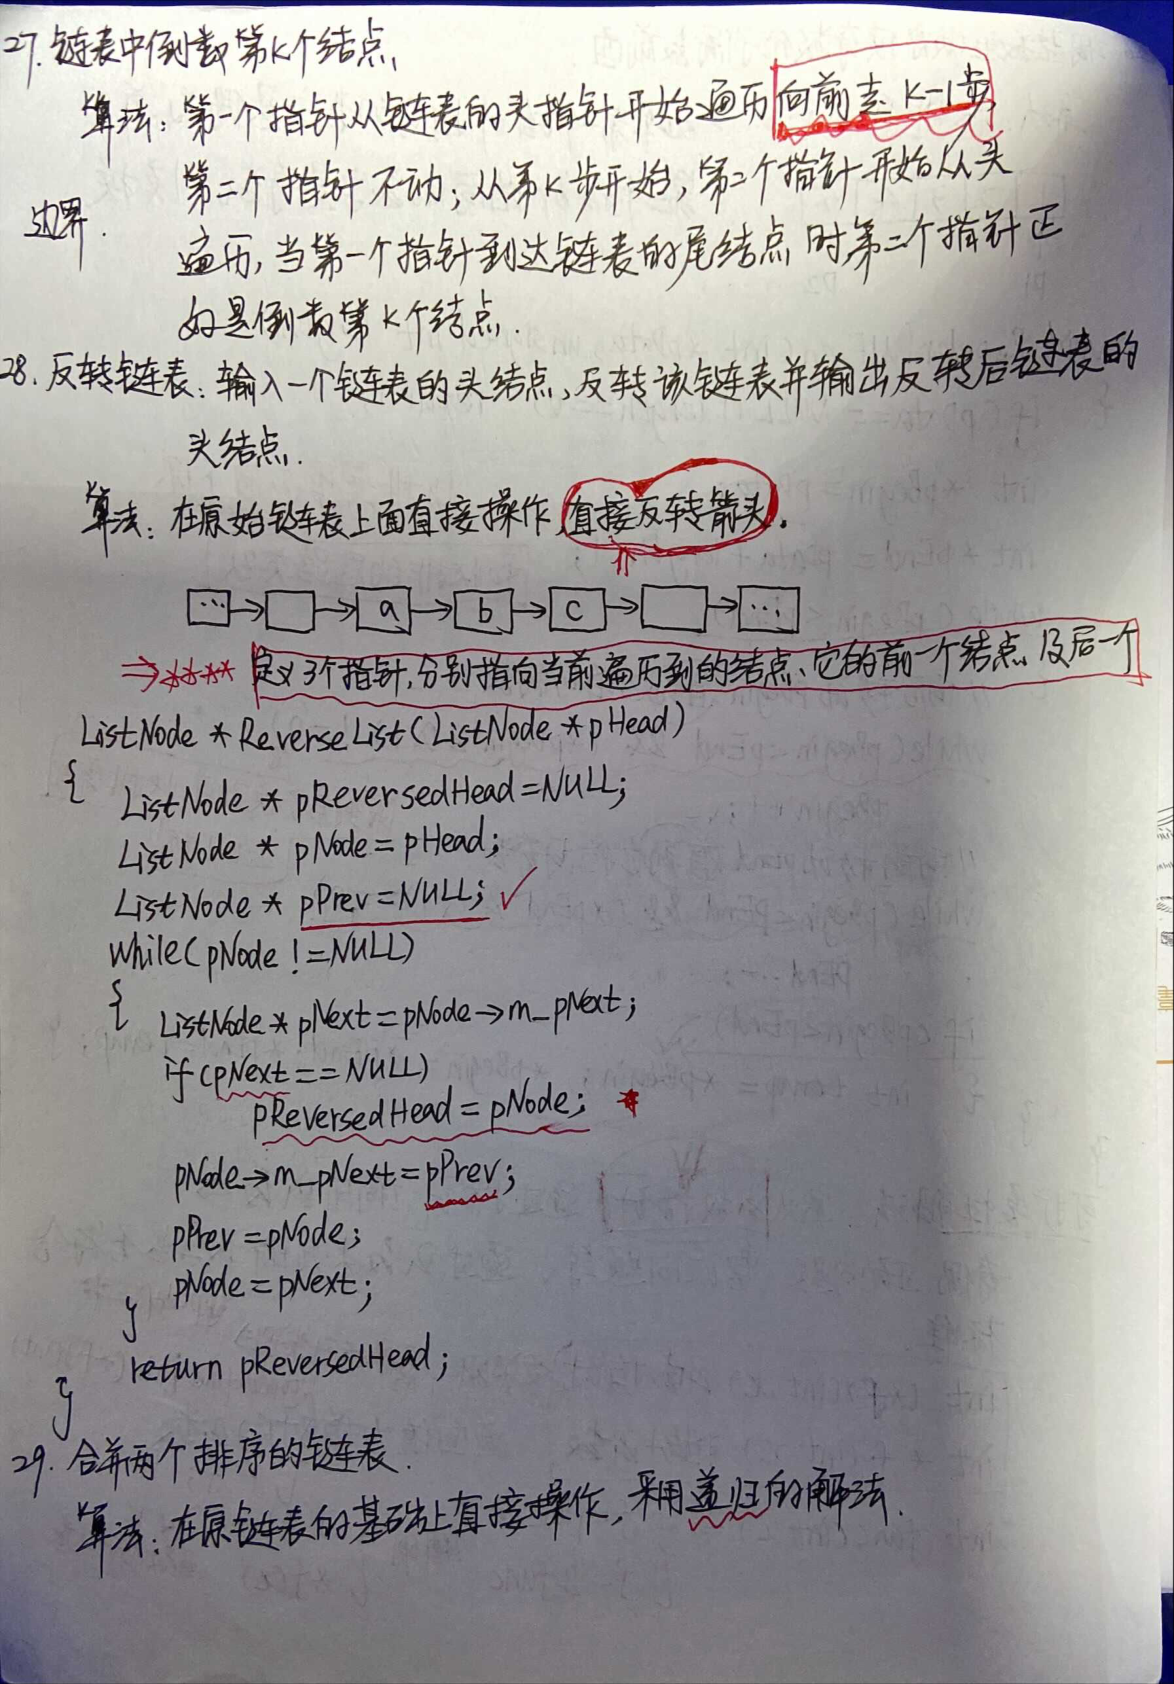 27. 链表中倒数第K个结点
算法：第一个指针从链表的头指针开始遍历向前走K-1步，
第二个指针不动；从第K步开始，第二个指针开始从头
边界.
遍历，当第一个指针到达链表的尾结点时第二个指针正
好是倒数第K个结点.
28. 反转链表：输入一个链表的头结点、反转该链表并输出反转后链表的
头结点.
算法：在原始链表上面直接操作，直接反转箭头.
... → □ → a → b → c → □ → ...
⇒ **** 定义3个指针，分别指向当前遍历到的结点、它的前一个结点及后一个
ListNode * ReverseList(ListNode * pHead)
{
ListNode * pReversedHead=NULL;
ListNode * pNode=pHead;
ListNode * pPrev=NULL; ✓
while(pNode!=NULL)
{
ListNode* pNext=pNode→m_pNext;
if(pNext==NULL)
pReversedHead=pNode; *
pNode→m_pNext=pPrev;
pPrev=pNode;
pNode=pNext;
}
return pReversedHead;
}
29. 合并两个排序的链表.
算法：在原链表的基础上直接操作，采用递归的解法.